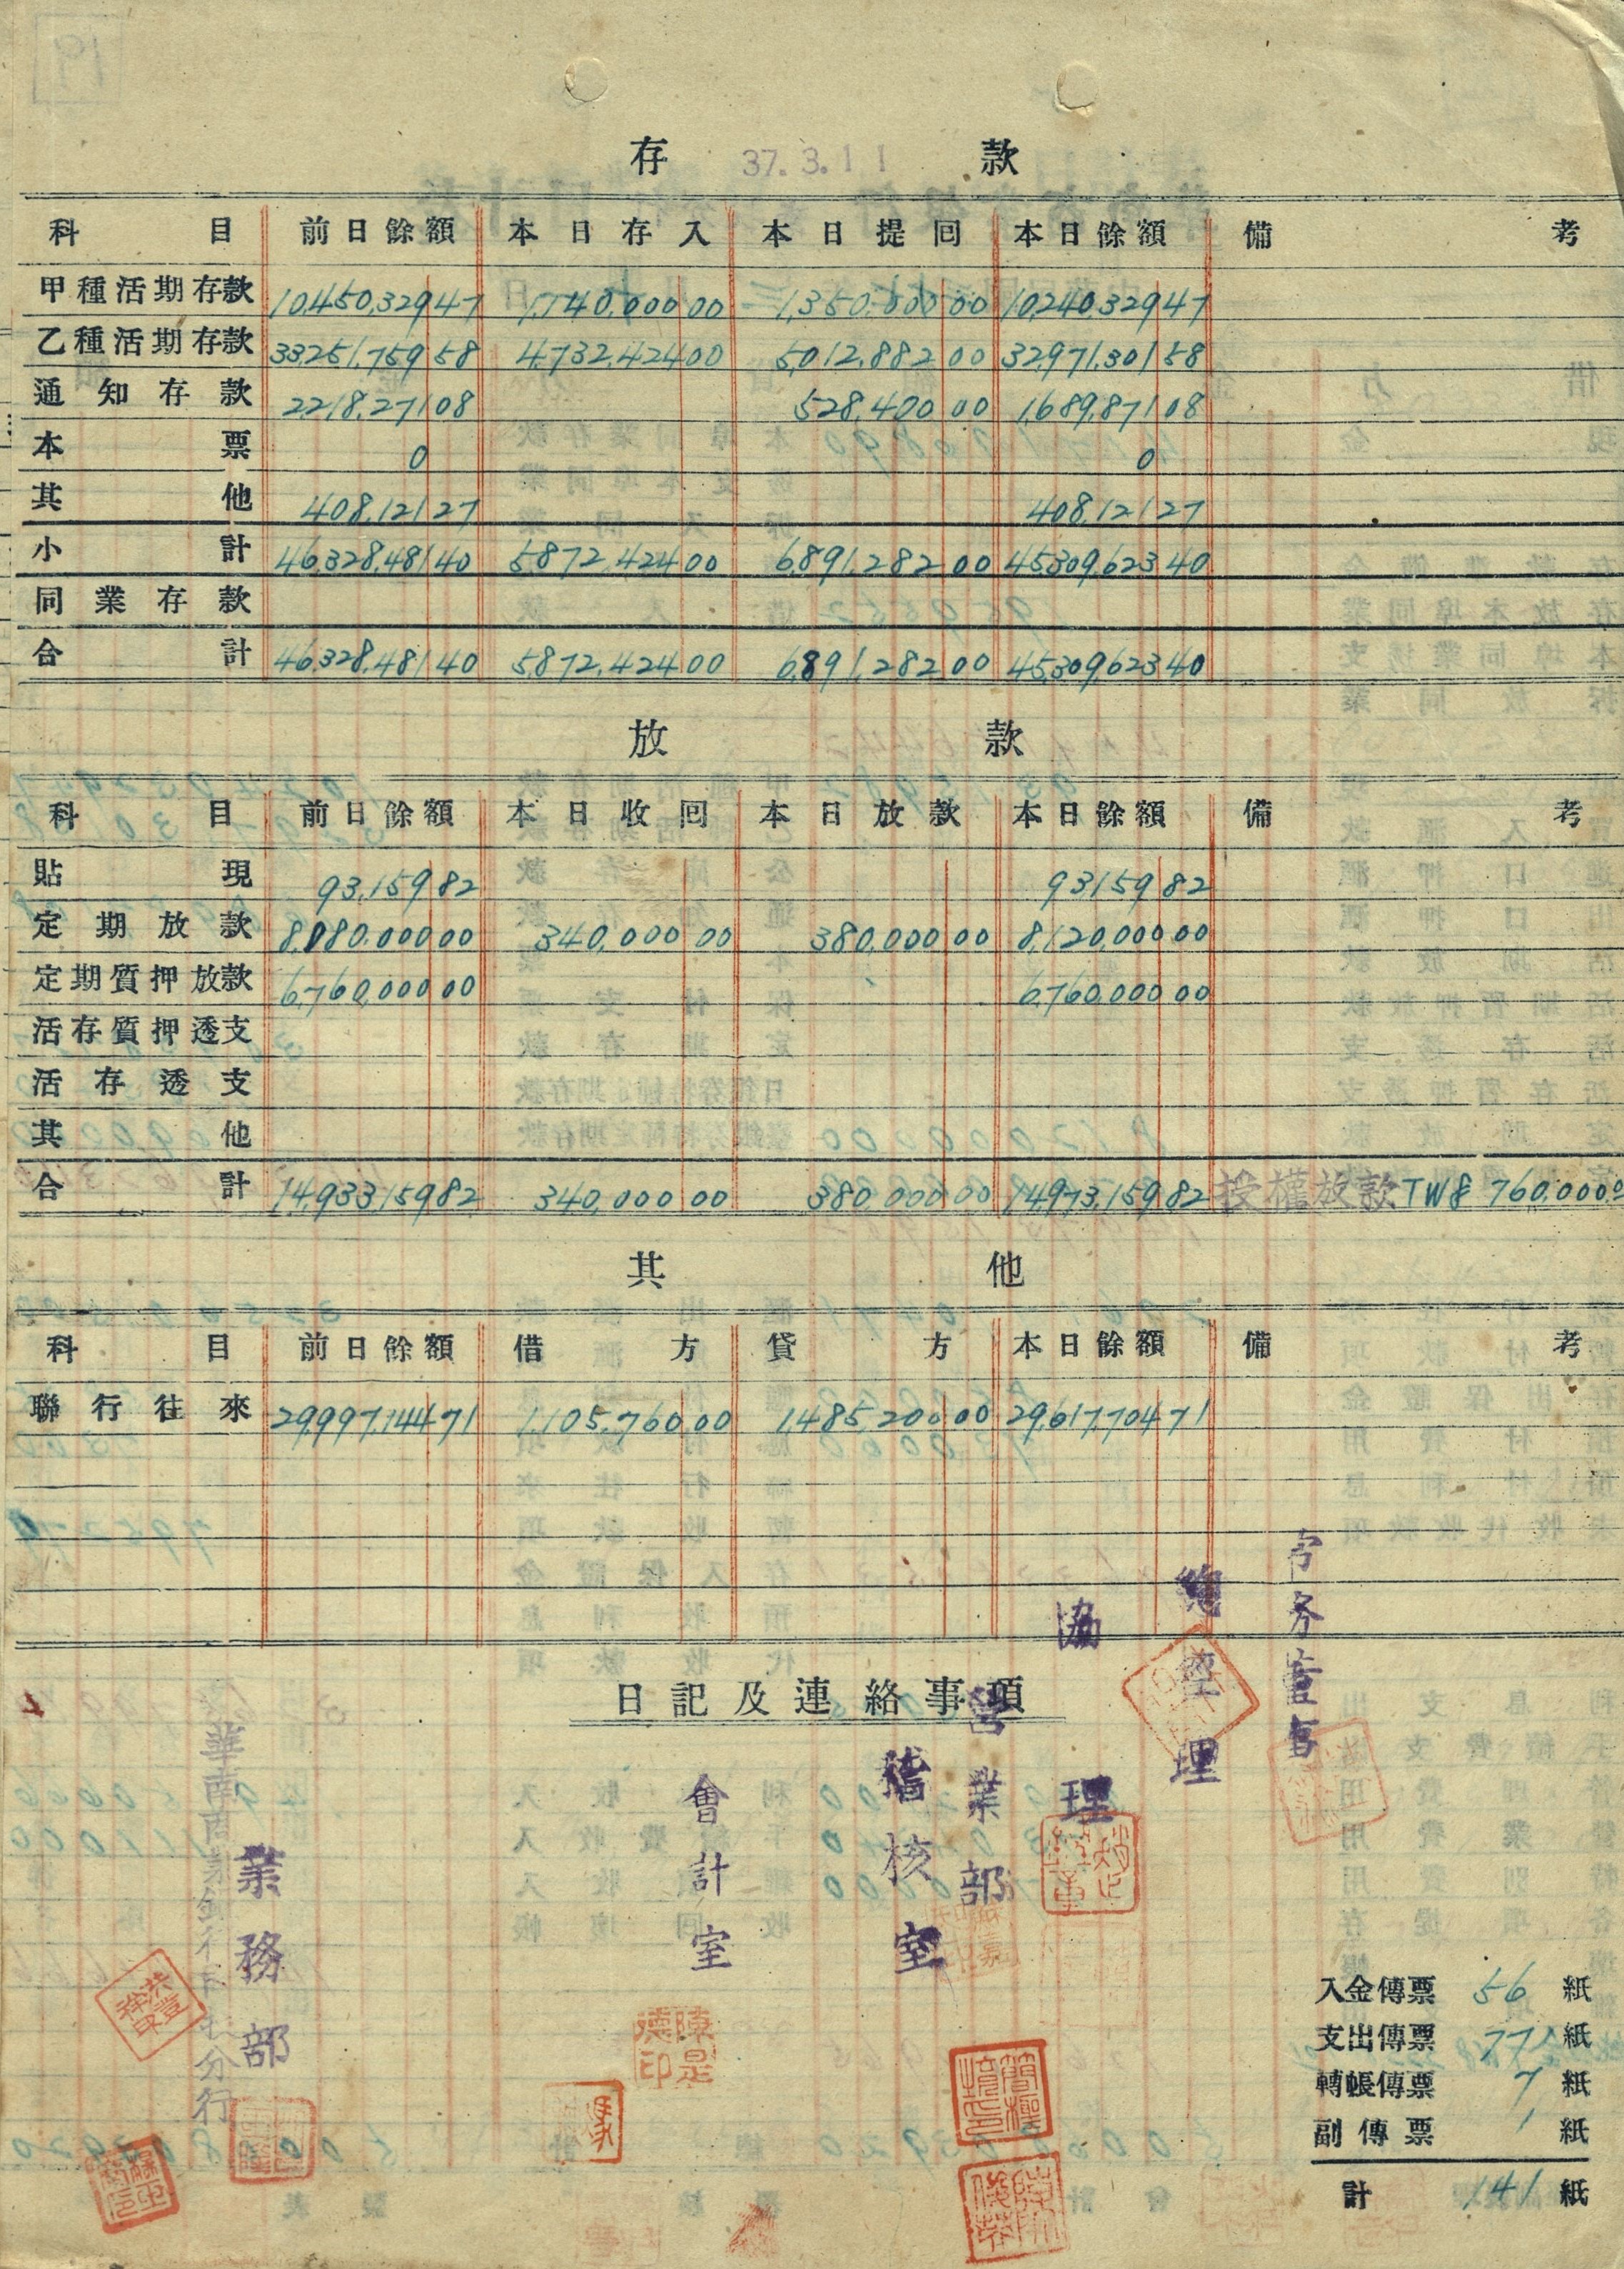 存 37.3.11 款
科目 前日餘額 本日存入 本日提回 本日餘額 備考
甲種活期存款 10,450,329 47 1,140,000 00 1,350,000 00 10,240,329 47
乙種活期存款 33,251,759 58 4,732,424 00 5,012,882 00 32,971,301 58
通知存款 2,218,271 08 528,400 00 1,689,871 08
本票 0 0
其他 408,121 27 408,121 27
小計 46,328,481 40 5,872,424 00 6,891,282 00 45,309,623 40
同業存款
合計 46,328,481 40 5,872,424 00 6,891,282 00 45,309,623 40
放款
科目 前日餘額 本日收回 本日放款 本日餘額 備考
貼現 93,159 82 93,159 82
定期放款 8,080,000 00 340,000 00 380,000 00 8,120,000 00
定期質押放款 6,760,000 00 6,760,000 00
活存質押透支
活存透支
其他
合計 14,933,159 82 340,000 00 380,000 00 14,973,159 82 授權放款TW$ 760,000.00
其他
科目 前日餘額 借方 貸方 本日餘額 備考
聯行往來 29,997,144 71 1,105,760 00 1,485,200 00 29,617,704 71
日記及連絡事項
常務董事
總經理
協理
營業部
稽核室
會計室
業務部
入金傳票 56 紙
支出傳票 77 紙
轉帳傳票 7 紙
副傳票 1 紙
計 141 紙